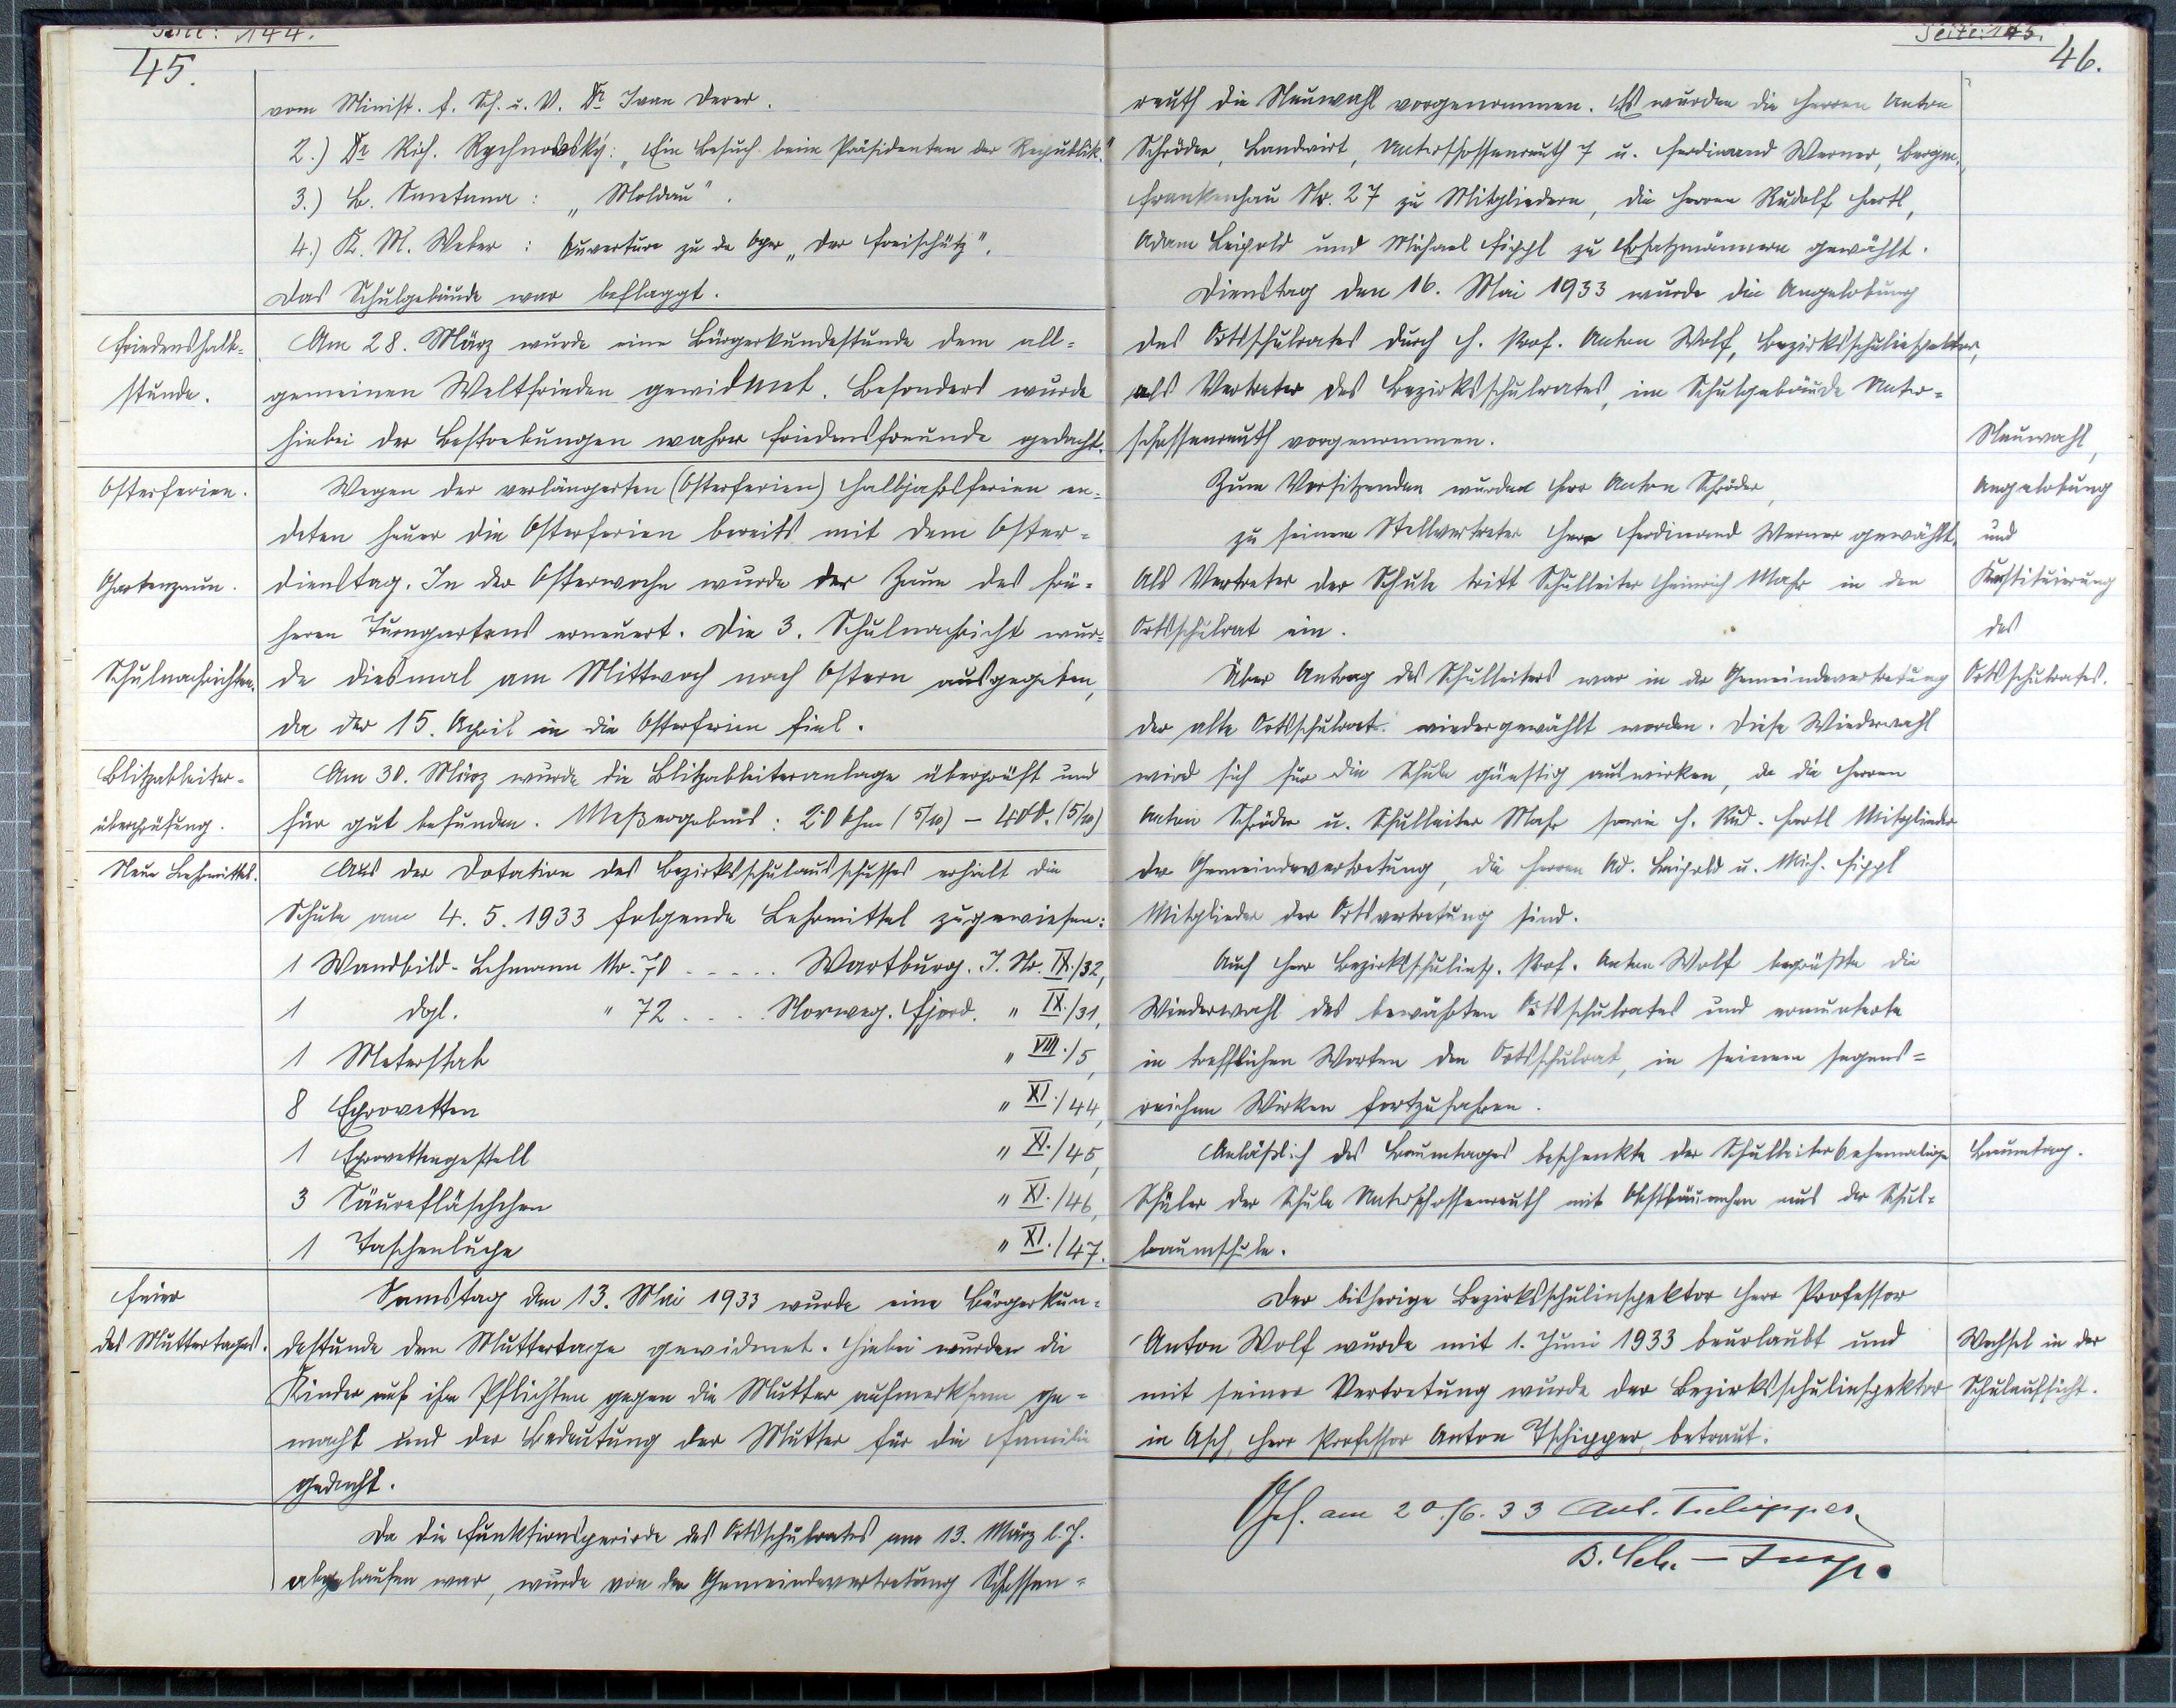 Seite: 144.
45.
vom Minist. f. Sch. u. V. Dr Ivan Derer.
2.) Dr Rich. Rychnovský: „Ein Besuch beim Präsidenten der Republik."
3.) B. Smetana: „Moldau".
4.) K. M. Weber: Ouverture zu de Oper „Der Freischütz".
Das Schulgebäude war beflaggt.
Friedenshalb=
stunde.
Am 28. März wurde eine Bürgerkundestunde dem all=
gemeinen Weltfrieden gewidmet. Besonders wurde
hiebei der Bestrebungen wahrer Friedensfreunde gedacht.
Osterferien.
Wegen der verlängerten (Osterferien) Halbjahrsferien en=
deten heuer die Osterferien bereits mit dem Oster=
Gartenzaun.
dienstag. In der Osterwoche wurde der Zaun des frü=
heren Turngartens erneuert. Die 3. Schulnachricht wur=
Schulnachrichten.
de diesmal am Mittwoch nach Ostern ausgegeben,
da der 15. April in die Osterferien fiel.
Blitzableiter-
überprüfung.
Am 30. März wurde die Blitzableiteranlage überprüft und
für gut befunden. Meßergebnis: 20 Ohm (5/10) – 40 O. (5/10)
Neue Lehrmittel.
Aus der Dotation des Bezirksschulausschusses erhielt die
Schule am 4. 5. 1933 folgende Lehrmittel zugewiesen:
1 Wandbild-Lehmann Nr. 70 ..... Wartburg. I. Nr. IX./32,
1 dgl. " 72 .... Norweg. Fjord. " IX./31,
1 Meterstab " VIII./5,
8 Eprovetten " XI./44,
1 Eprovettengestell " XI./45,
3 Säurefläschchen " XI./46,
1 Taschenluppe " XI./47.
Feier
des Muttertages.
Samstag den 13. Mai 1933 wurde eine Bürgerkun=
destunde dem Muttertage gewidmet. Hiebei wurden die
Kinder auf ihre Pflichten gegen die Mutter aufmerksam ge=
macht und der Bedeutung der Mutter für die Familie
gedacht.
Da die Funktionsperiode des Ortsschulrates am 13. März l. J.
abgelaufen war, wurde von der Gemeindevertretung Schossen=
Seite: 145.
46.
reuth die Neuwahl vorgenommen. Es wurden die Herren Anton
Schröder, Landwirt, Unterschossenreuth 7 u. Ferdinand Werner, Bergm.,
Frankenhau Nr. 27 zu Mitgliedern, die Herren Rudolf Hartl,
Adam Leipold und Michael Fippl zu Ersatzmännern gewählt.
Dienstag den 16. Mai 1933 wurde die Angelobung
des Ortsschulrates durch H. Prof. Anton Wolf, Bezirksschulinspektor,
als Vertreter des Bezirksschulrates, im Schulgebäude Unter=
schossenreuth vorgenommen.
Zum Vorsitzenden wurden Herr Anton Schröder,
zu seinem Stellvertreter Herr Ferdinand Werner gewählt.
Als Vertreter der Schule tritt Schulleiter Heinrich Mahr in den
Ortsschulrat ein.
Neuwahl,
Angelobung
und
Konstituierung
des
Ortsschulrates.
Über Antrag des Schulleiters war in der Gemeindevertretung
der alte Ortsschulrat wiedergewählt worden. Diese Wiederwahl
wird sich für die Schule günstig auswirken, da die Herren
Anton Schröder u. Schulleiter Mahr sowie H. Rud. Hartl Mitglieder
der Gemeindevertretung, die Herren Ad. Leipold u. Mich. Fippl
Mitglieder der Ortsvertretung sind.
Auch Herr Bezirksschulinsp. Prof. Anton Wolf begrüßte die
Wiederwahl des bewährten Ortsschulrates und ermunterte
in trefflichen Worten den Ortsschulrat, in seinem segens=
reichen Wirken fortzufahren.
Anläßlich des Baumtages beschenkte der Schulleiter 6 ehemalige
Schüler der Schule Unterschossenreuth mit Obstbäumchen aus der Schul=
baumschule.
Baumtag.
Der bisherige Bezirksschulinspektor Herr Professor
Anton Wolf wurde mit 1. Juni 1933 beurlaubt und
mit seiner Vertretung wurde der Bezirksschulinspektor
in Asch, Herr Professor Anton Tschipper, betraut.
Wechsel in der
Schulaufsicht.
Ges. am 20./6. 33 Ant. Tschipper
B. Sch. – Insp.